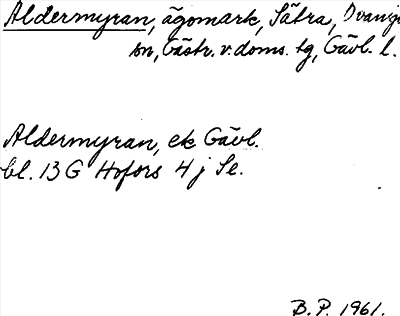 Aldermyran, ägomark, Sätra, Ovansjö
sn, Gästr. v. doms. tg, Gävl. l.
Aldermyran, ek Gävl.
bl. 13 G Hofors 4 j Se.
B. P. 1961.